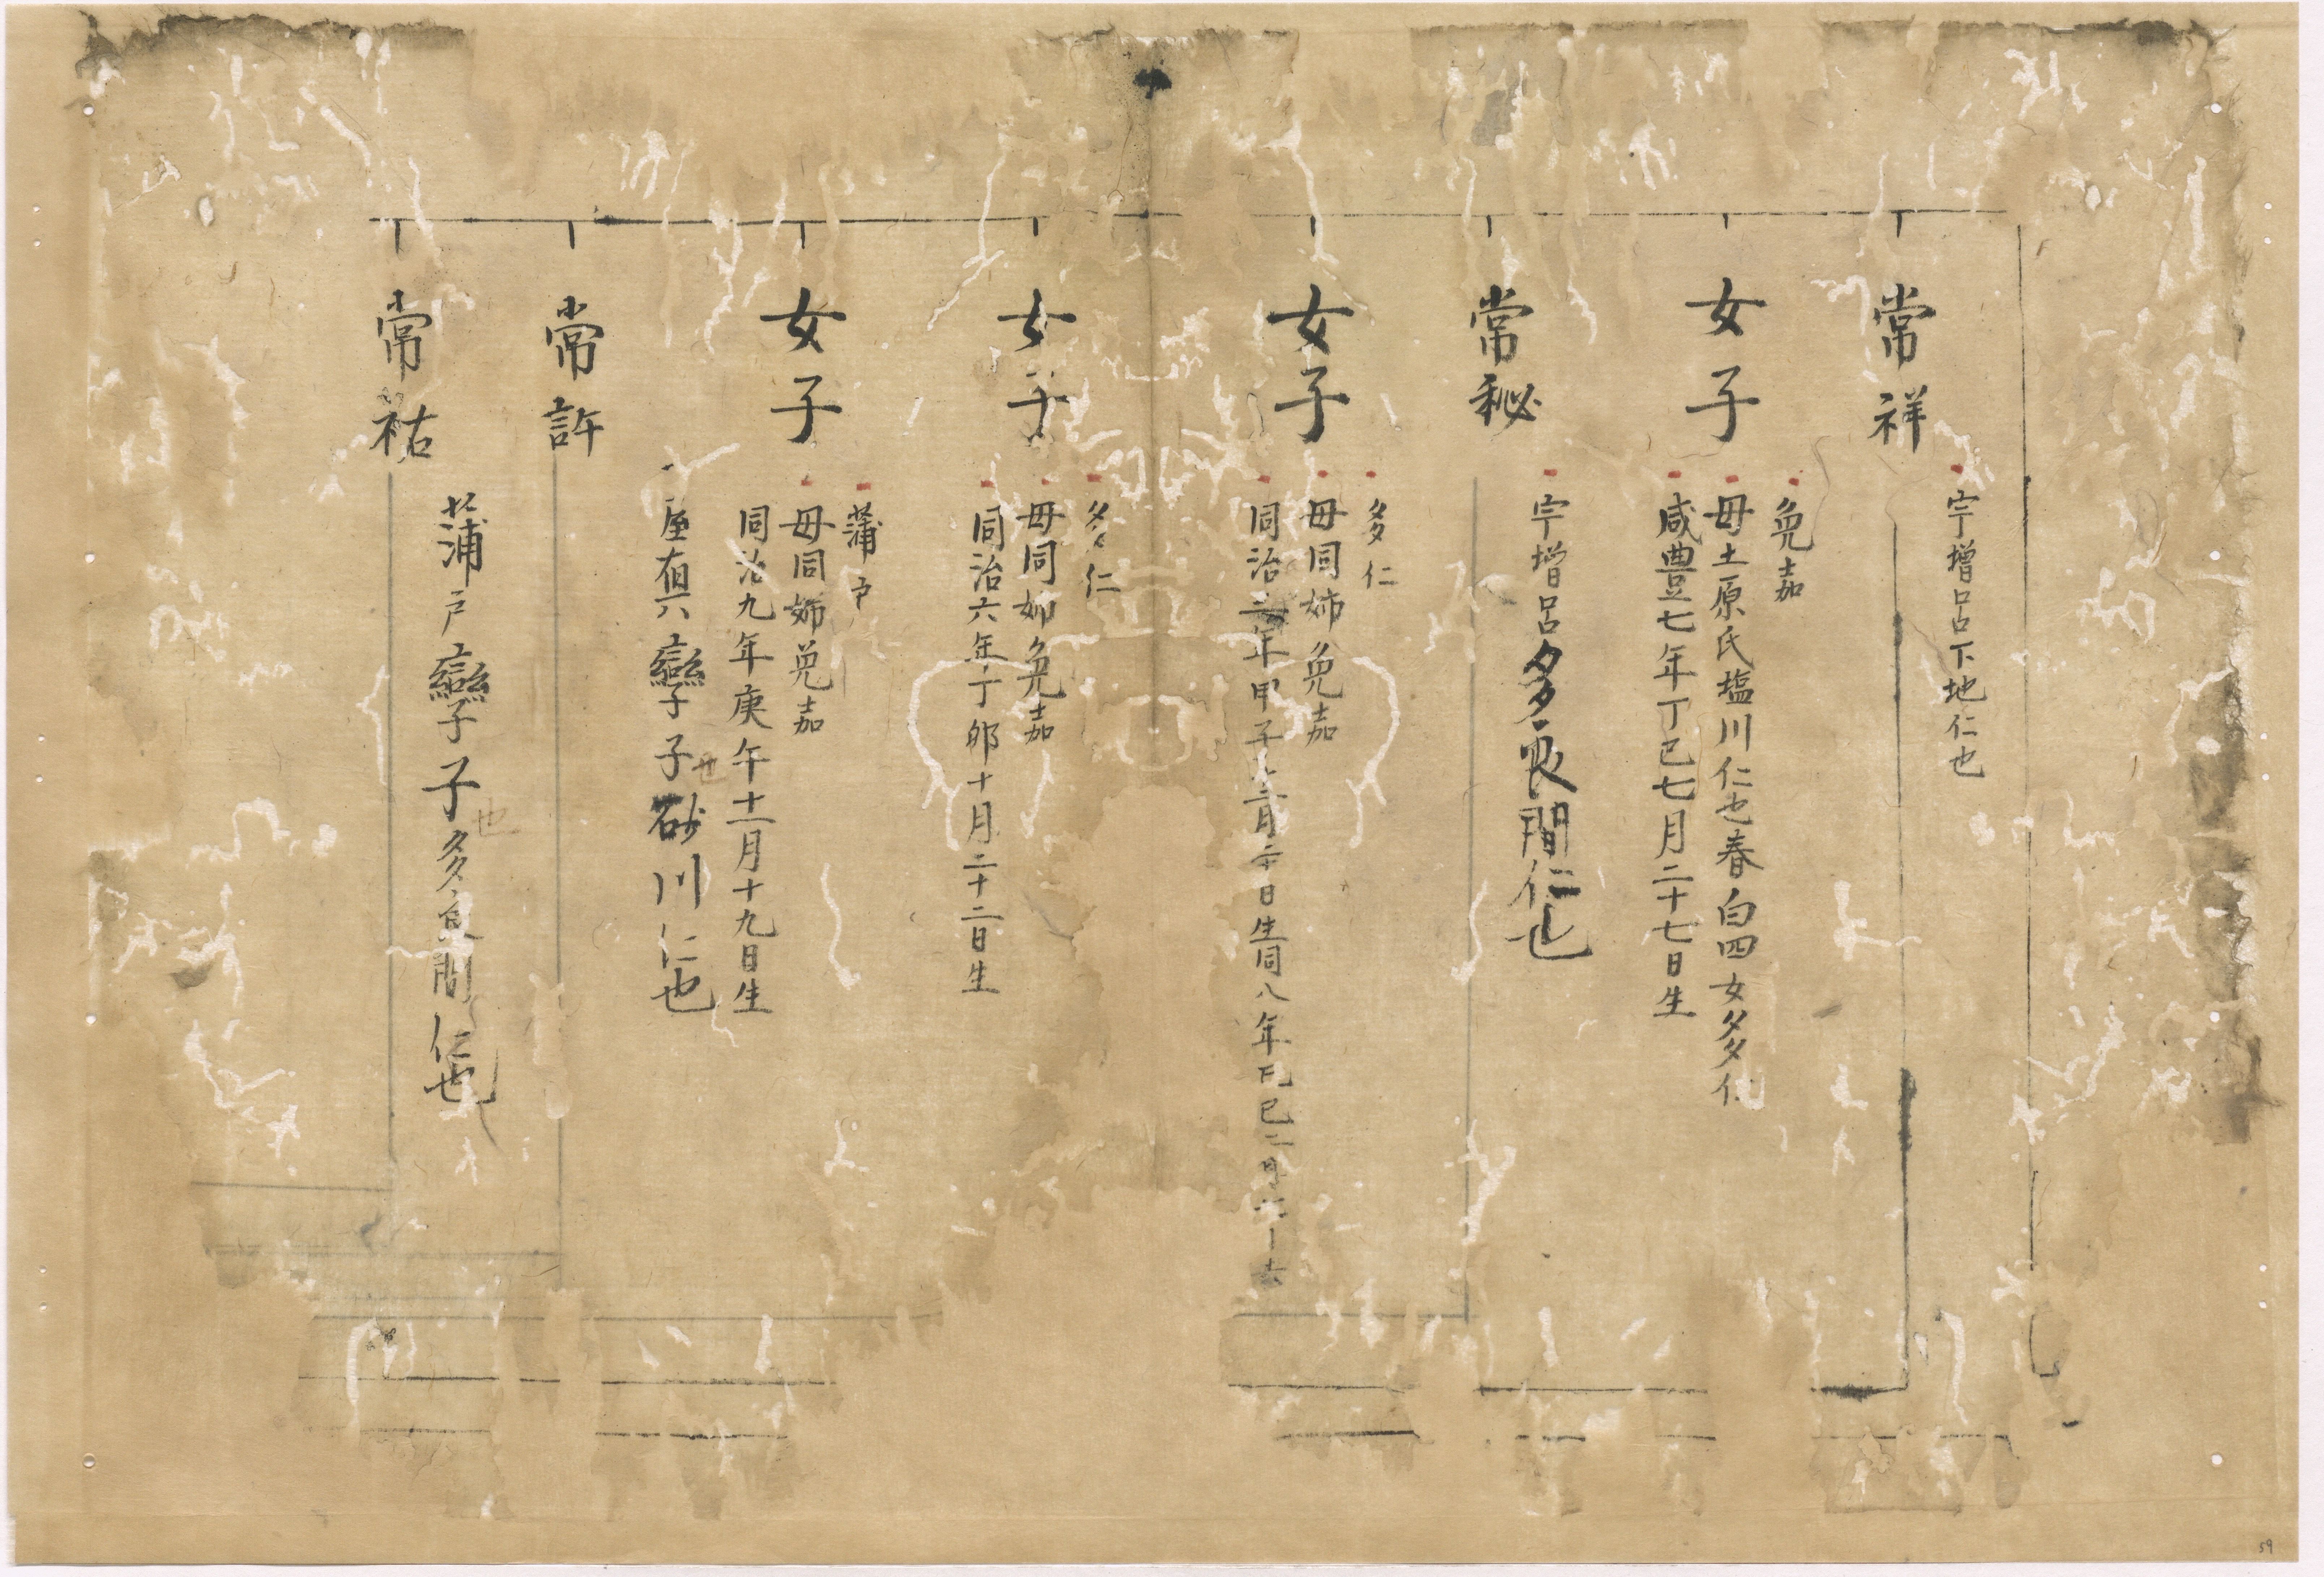 常祥
宇増呂下地仁也
女子
免嘉
母土原氏塩川仁也春白四女多仁
咸豊七年丁巳七月二十七日生
常秘
宇増呂多良間仁也
女子
多仁
母同姉免嘉
同治三年甲子 月二十日生同八年己巳二月 去
女子
多仁
母同姉免嘉
同治六年丁卯十月二十二日生
女子
蒲戸
母同姉免嘉
同治九年庚午十一月十九日生
常許
屋真 孿子子砂川仁也
也
常祐
蒲戸孿子子多良間仁也
也
59